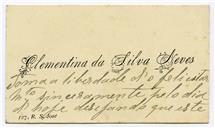 Clementina da Silva Neves
toma a liberdade de o felicitar
mto sinceramente pelo dia
d'hoje desejando que este
127, R. S. José